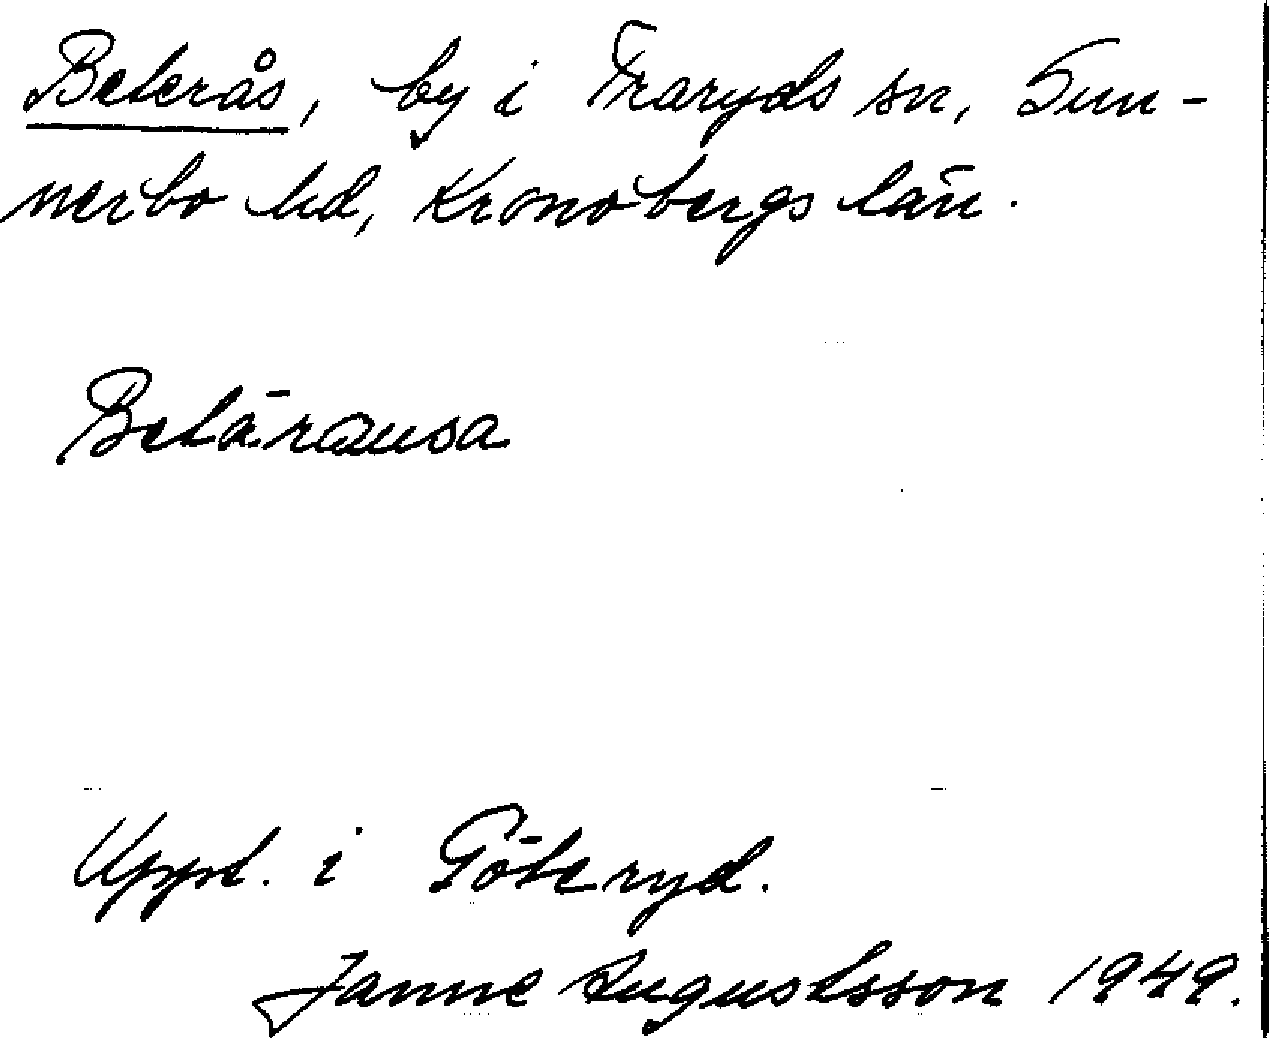 Beterås, by i Traryds sn, Sun-
nerbo hd, Kronobergs län.
Betäransa
Uppt. i Göteryd.
Janne Augustsson 1949.